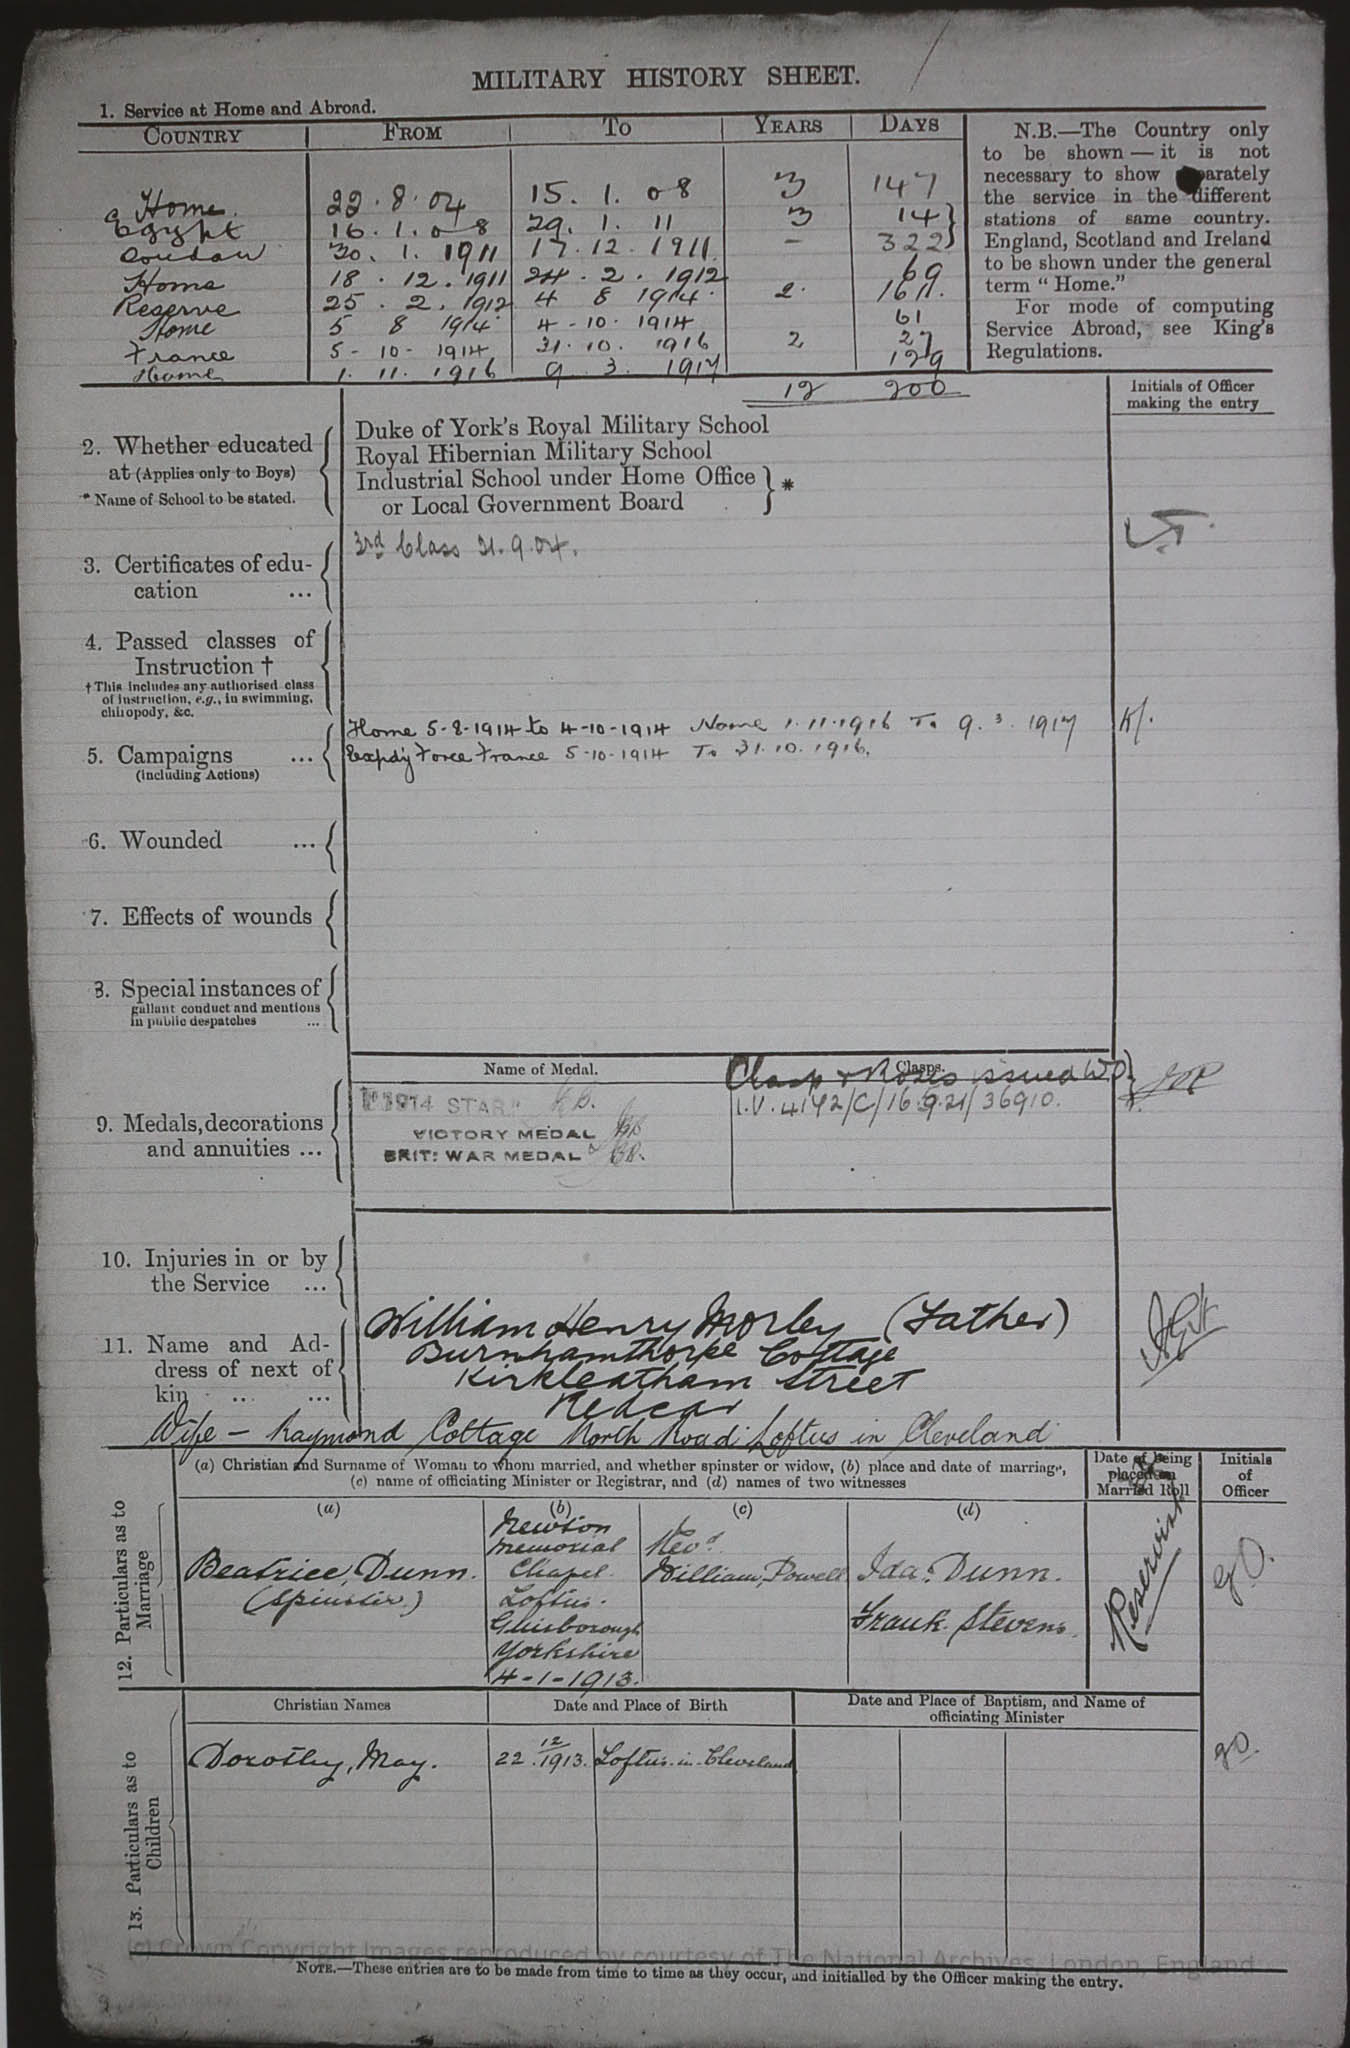 MILITARY HISTORY SHEET.
1. Service at Home and Abroad.
COUNTRY FROM TO YEARS DAYS
Home 22.8.04 15.1.08 3 147
Egypt 16.1.08 29.1.11 3 14
Soudan 30.1.1911 17.12.1911 - 322
Home 18.12.1911 24.2.1912 69
Reserve 25.2.1912 4 8 1914 2 161.
Home 5 8 1914 4-10-1914 61
France 5-10-1914 31.10.1916 2 27
Home 1.11.1916 9 3 1917 129
12 200
N.B.—The Country only
to be shown — it is not
necessary to show separately
the service in the different
stations of same country.
England, Scotland and Ireland
to be shown under the general
term "Home."
For mode of computing
Service Abroad, see King's
Regulations.
Initials of Officer
making the entry
2. Whether educated
at (Applies only to Boys)
* Name of School to be stated.
Duke of York's Royal Military School
Royal Hibernian Military School
Industrial School under Home Office
or Local Government Board *
3. Certificates of edu-
cation ...
3rd Class 21.9.04.
4. Passed classes of
Instruction †
† This includes any authorised class
of instruction, e.g., in swimming,
chiropody, &c.
5. Campaigns ...
(including Actions)
Home 5-8-1914 to 4-10-1914 Home 1.11.1916 To 9.3.1917
Expdy Force France 5-10-1914 To 31.10.1916.
6. Wounded ...
7. Effects of wounds
8. Special instances of
gallant conduct and mentions
in public despatches ...
9. Medals, decorations
and annuities ...
Name of Medal. Clasps.
Clasp & Roses issued
1914 STAR
VICTORY MEDAL
BRIT: WAR MEDAL
I.V. 4142/C/16.9.21/36910.
10. Injuries in or by
the Service ...
11. Name and Ad-
dress of next of
kin .. ...
William Henry Morley (Father)
Burnhamthorpe Cottage
Kirkleatham Street
Redcar
Wife - Raymond Cottage North Road Loftus in Cleveland
12. Particulars as to
Marriage
(a) Christian and Surname of Woman to whom married, and whether spinster or widow, (b) place and date of marriage,
(c) name of officiating Minister or Registrar, and (d) names of two witnesses
Date of being
placed on
Married Roll
Initials
of
Officer
(a) (b) (c) (d)
Beatrice, Dunn.
(Spinster)
Newton
Memorial
Chapel.
Loftus.
Guisborough
Yorkshire
4-1-1913.
Revd.
William, Powell
Ida. Dunn.
Frank. Stevens.
Reservist
G.O.
13. Particulars as to
Children
Christian Names Date and Place of Birth
Date and Place of Baptism, and Name of
officiating Minister
Dorothy, May. 22.12/1913. Loftus-in-Cleveland
G.O.
(c) Crown Copyright Images reproduced by courtesy of The National Archives, London, England
NOTE.—These entries are to be made from time to time as they occur, and initialled by the Officer making the entry.